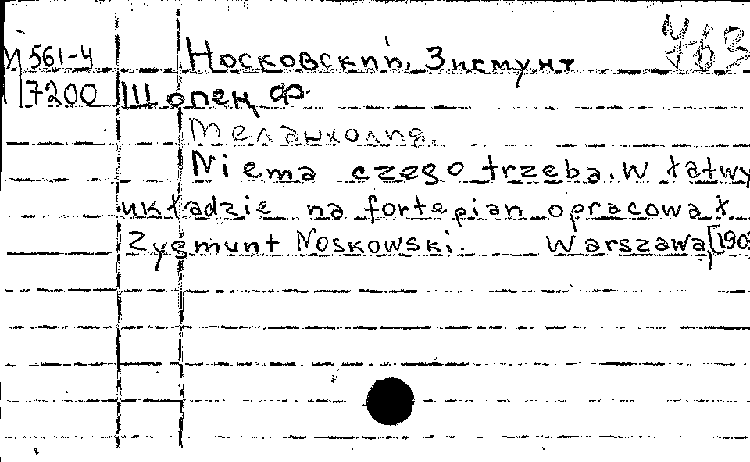 М 561-4 Носковский, Зигмунт 763
7200 Шопен Ф.
Меланхолия.
Niema czego trzeba. W łatwy
układzie na fortepian opracował
Zygmunt Noskowski. Warszawa, [190